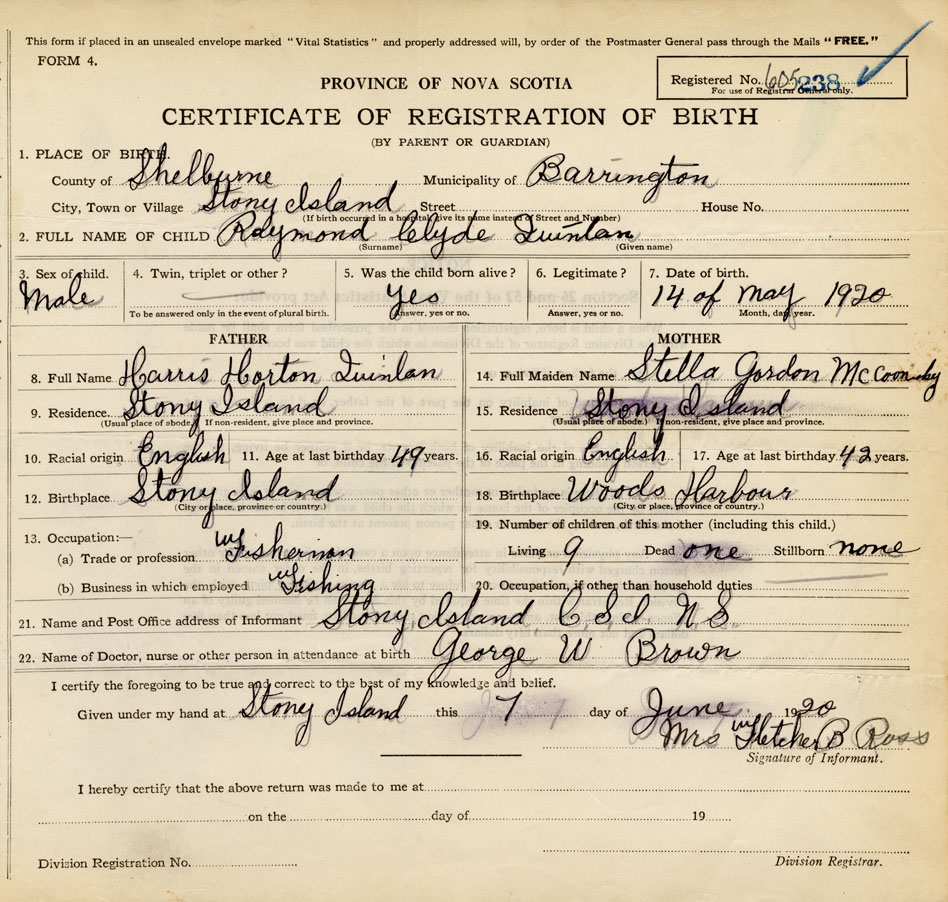 This form if placed in an unsealed envelope marked "Vital Statistics" and properly addressed will, by order of the Postmaster General pass through the Mails "FREE."
FORM 4.
Registered No. 605 238
For use of Registrar General only.
PROVINCE OF NOVA SCOTIA
CERTIFICATE OF REGISTRATION OF BIRTH
(BY PARENT OR GUARDIAN)
1. PLACE OF BIRTH.
County of Shelburne Municipality of Barrington
City, Town or Village Stony Island Street House No.
(If birth occurred in a hospital, give its name instead of Street and Number)
2. FULL NAME OF CHILD Raymond Clyde Quinlan
(Surname) (Given name)
3. Sex of child. 4. Twin, triplet or other? 5. Was the child born alive? 6. Legitimate? 7. Date of birth.
Male Yes 14 of May 1920
To be answered only in the event of plural birth. Answer, yes or no. Answer, yes or no. Month, day, year.
FATHER MOTHER
8. Full Name Harris Horton Quinlan 14. Full Maiden Name Stella Gordon
9. Residence Stony Island 15. Residence Stony Island
(Usual place of abode. If non-resident, give place and province. (Usual place of abode.) If non-resident, give place and province.
10. Racial origin English 11. Age at last birthday 49 years. 16. Racial origin English 17. Age at last birthday 42 years.
12. Birthplace Stony Island 18. Birthplace Woods Harbour
(City or place, province or country.) (City or place, province or country.)
19. Number of children of this mother (including this child.)
13. Occupation:—
(a) Trade or profession Fisherman Living 9 Dead one Stillborn none
(b) Business in which employed Fishing 20. Occupation, if other than household duties
21. Name and Post Office address of Informant Stony Island C S I. N S.
22. Name of Doctor, nurse or other person in attendance at birth George W Brown
I certify the foregoing to be true and correct to the best of my knowledge and belief.
Given under my hand at Stony Island this 7 day of June 1920
Mrs Fletcher B Ross
Signature of Informant.
I hereby certify that the above return was made to me at
on the day of 19
Division Registration No. Division Registrar.